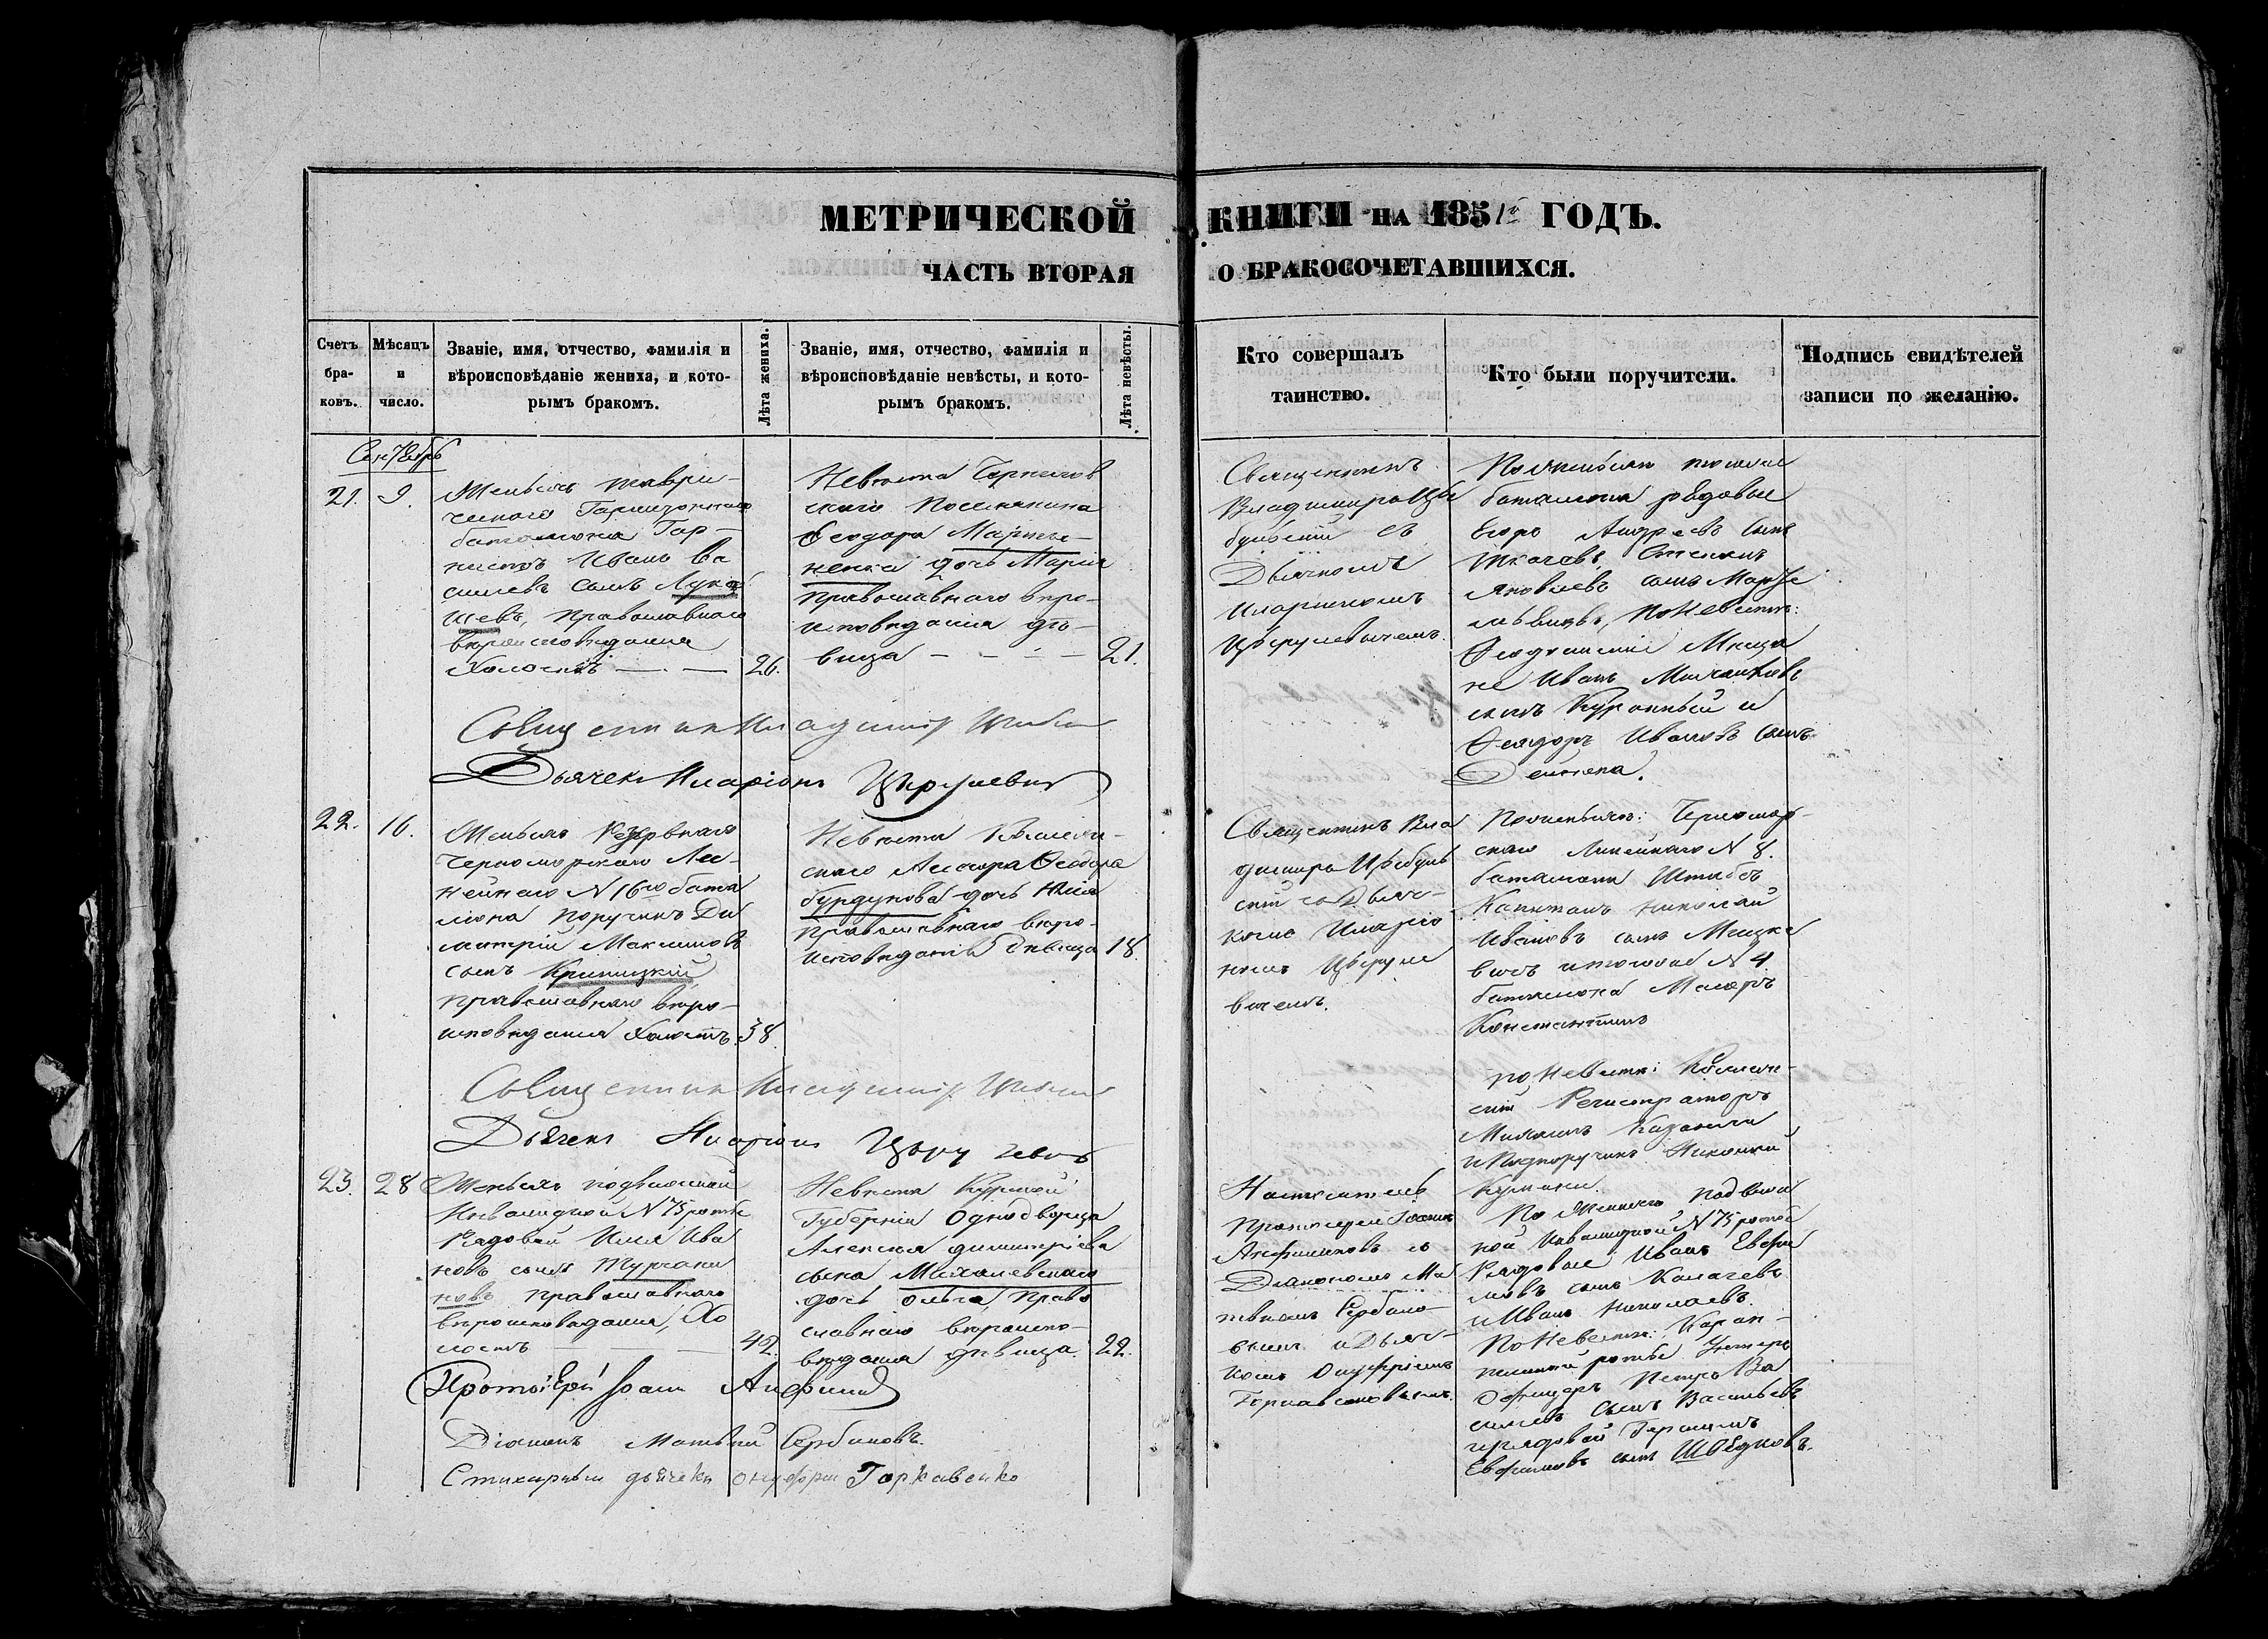 МЕТРИЧЕСКОЙ КНИГИ НА 1851й ГОДЪ.
ЧАСТЬ ВТОРАЯ О БРАКОСОЧЕТАВШИХСЯ.
Счетъ браковъ.
Мѣсяцъ и число.
Званіе, имя, отчество, фамилія и
вѣроисповѣданіе жениха, и кото-
рымъ бракомъ.
Лѣта жениха.
Званіе, имя, отчество, фамилія и
вѣроисповѣданіе невѣсты, и кото-
рымъ бракомъ.
Лѣта невѣсты.
Кто совершалъ
таинство.
Кто были поручители.
Подпись свидѣтелей
записи по желанію.
Сентябрь
21. 9.
Женихъ таври-
ческаго Гарнизоннаго
баталіона Гор-
нистъ Иванъ Ва
сильевъ сынъ
православнаго
вѣроисповѣданія
Холостъ 26.
Невѣста
скаго Поселянина
Ѳеодора
дочь Марія
православнаго вѣро-
исповѣданія дѣ-
вица 21.
Священникъ
Владиміръ
съ
Дьячкомъ
Иларіономъ
баталіона рядовые
Егоръ Андреевъ сынъ
Ткачевъ, Степанъ
Яковлевъ сынъ
по Невѣстѣ:
Ѳеодосійскіе Мѣща
не Иванъ
сынъ Куранный и
Ѳеодоръ Ивановъ сынъ
Дейнека.
Священникъ Владиміръ
Дьячекъ Иларіонъ
22. 16.
Женихъ Резервнаго
Черноморскаго Ли-
нейнаго N 16го бата
ліона поручикъ Ди
митрій Максимовъ
сынъ Криницкій
православнаго вѣро-
исповѣданія Холостъ. 38.
Невѣста Коллеж-
скаго Ассесора Ѳеодора
Бурдукова дочь Юлія
православнаго вѣро-
исповѣданія дѣвица 18.
Священникъ Вла
диміръ
скій съ Дьяч-
комъ Иларіо
номъ
Черномор-
скаго Линейнаго N 8.
баталіона Штабсъ
Капитанъ Николай
Ивановъ сынъ Мицке
вичъ N 4
баталіона Маіоръ
Константинъ
по Невѣстѣ: Коллеж-
скій Регистраторъ
и Подпоручикъ Николай
Священникъ Владиміръ
Дьячекъ Иларіонъ
23. 28
Женихъ подвижной
Инвалидной N 75 роты
Рядовой Илья Ива
новъ сынъ Турчани
новъ православнаго
вѣроисповѣданія, Хо
лостъ 42.
Невѣста Курской
Губерніи Однодворца
Алексѣя Димитріева
сына Михалевскаго
дочь Ольга, право
славнаго вѣроиспо-
вѣданія дѣвица. 22.
Настоятель
Протоіерей Іоаннъ
Анфимовъ съ
Діакономъ Ма
твѣемъ Сербино-
вымъ и Дьяч-
комъ Онуфріемъ
По Женихѣ подвиж
ной Инвалидной N 75 роты
Рядовые Иванъ Евфи
мовъ сынъ Калачевъ
и Иванъ Николаевъ.
По Невѣстѣ: Каран-
тинной роты Унтеръ
Офицеръ Петръ Ва
сильевъ сынъ Васильевъ
и рядовой Герасимъ
Евфимовъ сынъ Шведковъ.
Протоіерей Іоаннъ Анфимовъ
Діаконъ Матвѣй Сербиновъ.
Стихарный дьячекъ Онуфрій Горкавенко